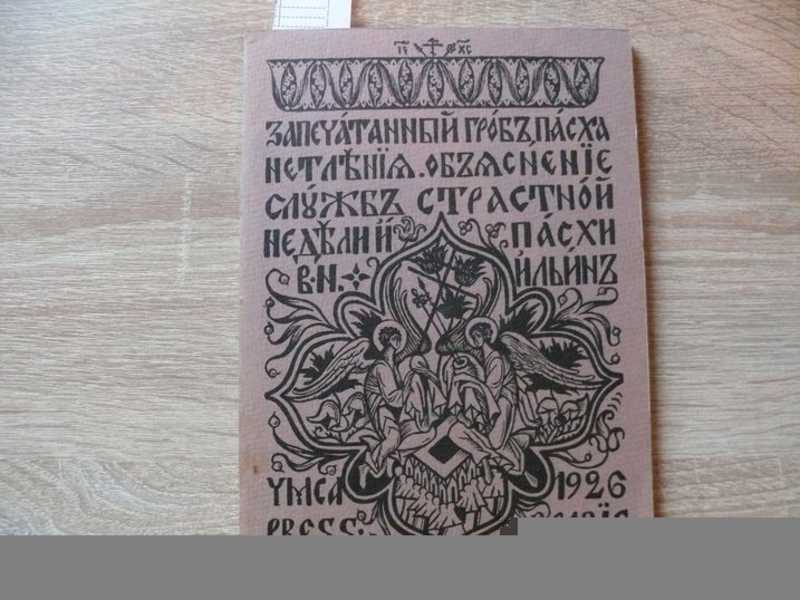 ІС ХС
ЗАПЕЧА́ТАННЫЙ ГРО́БЪ, ПА́СХА
НЕТЛѢ́НІЯ. ОБЪЯСНЕ́НІЕ
СЛУ́ЖБЪ СТРАСТНО́Й
НЕДѢ́ЛИ И ПА́СХИ
В. Н. ИЛЬИ́НЪ
YMCA 1926
PRESS: